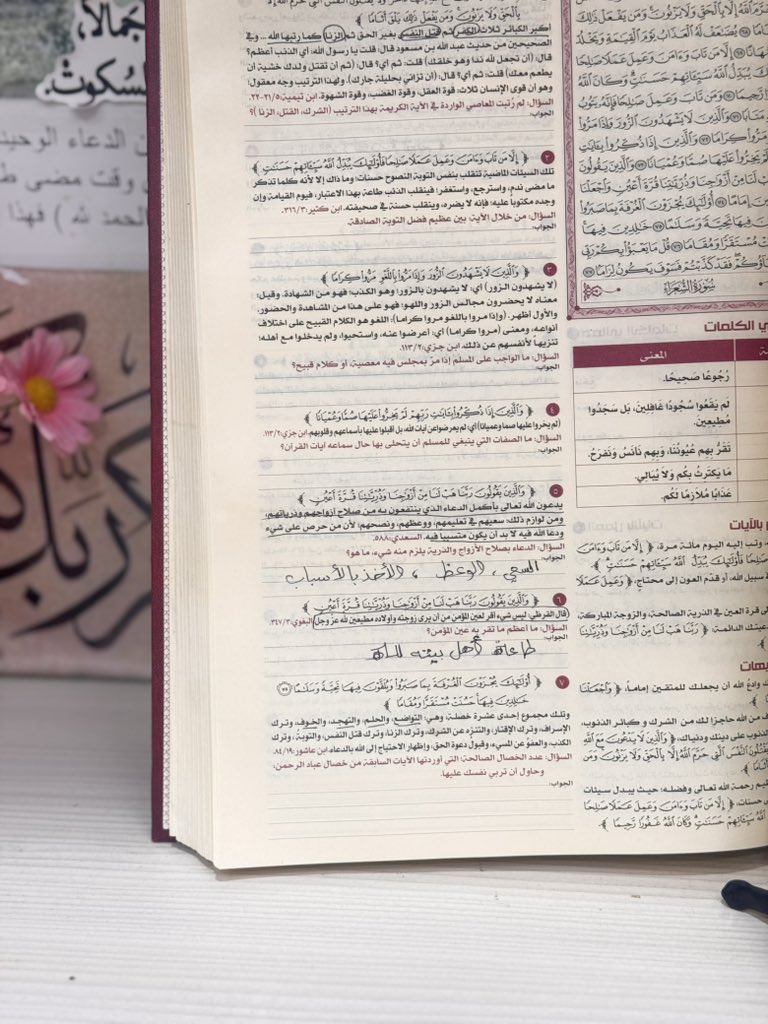 بِالْحَقِّ وَلَا يَزْنُونَ وَمَن يَفْعَلْ ذَٰلِكَ يَلْقَ أَثَامًا ﴾
أكبر الكبائر ثلاث: الكفر، ثم قتل النفس بغير الحق، ثم الزنا؛ كما رتبها الله ... وفي
الصحيحين من حديث عبد الله بن مسعود قال: قلت يا رسول الله؛ أي الذنب أعظم؟
قال: (أن تجعل لله نداً وهو خلقك) قلت: ثم أي؟ قال: (ثم أن تقتل ولدك خشية أن
يطعم معك) قلت: ثم أي؟ قال: (أن تزاني بحليلة جارك). ولهذا الترتيب وجه معقول،
وهو أن قوى الإنسان ثلاث: قوة العقل، وقوة الغضب، وقوة الشهوة. ابن تيمية: ٥/٢١-٢٢.
السؤال: لم رُتبت المعاصي الواردة في الآية الكريمة بهذا الترتيب (الشرك، القتل، الزنا)؟
الجواب:
٢ ﴿ إِلَّا مَن تَابَ وَءَامَنَ وَعَمِلَ عَمَلًا صَالِحًا فَأُوْلَٰئِكَ يُبَدِّلُ اللَّهُ سَيِّئَاتِهِمْ حَسَنَاتٍ ﴾
تلك السيئات الماضية تنقلب بنفس التوبة النصوح حسنات؛ وما ذاك إلا لأنه كلما تذكر
ما مضى ندم، واسترجع، واستغفر؛ فينقلب الذنب طاعة بهذا الاعتبار، فيوم القيامة وإن
وجده مكتوبا عليه؛ فإنه لا يضره، وينقلب حسنة في صحيفته. ابن كثير: ٣١٦/٣.
السؤال: من خلال الآية؛ بين عظيم فضل التوبة الصادقة.
الجواب:
٣ ﴿ وَالَّذِينَ لَا يَشْهَدُونَ الزُّورَ وَإِذَا مَرُّوا بِاللَّغْوِ مَرُّوا كِرَامًا ﴾
(لا يشهدون الزور) أي: لا يشهدون بالزور؛ وهو الكذب؛ فهو من الشهادة. وقيل:
معناه لا يحضرون مجالس الزور واللهو؛ فهو على هذا من المشاهدة والحضور،
والأول أظهر. (وإذا مروا باللغو مروا كراما): اللغو هو الكلام القبيح على اختلاف
أنواعه، ومعنى (مروا كراما) أي: أعرضوا عنه، واستحيوا، ولم يدخلوا مع أهله؛
تنزيهاً لأنفسهم عن ذلك. ابن جزي: ١١٣/٢.
السؤال: ما الواجب على المسلم إذا مرّ بمجلس فيه معصية أو كلام قبيح؟
الجواب:
٤ ﴿ وَالَّذِينَ إِذَا ذُكِّرُوا بِآيَاتِ رَبِّهِمْ لَمْ يَخِرُّوا عَلَيْهَا صُمًّا وَعُمْيَانًا ﴾
(لم يخروا عليها صما وعميانا) أي: لم يعرضوا عن آيات الله، بل أقبلوا عليها بأسماعهم وقلوبهم. ابن جزي: ١١٣/٢.
السؤال: ما الصفات التي ينبغي للمسلم أن يتحلى بها حال سماعه آيات القرآن؟
الجواب:
٥ ﴿ وَالَّذِينَ يَقُولُونَ رَبَّنَا هَبْ لَنَا مِنْ أَزْوَاجِنَا وَذُرِّيَّاتِنَا قُرَّةَ أَعْيُنٍ ﴾
يدعون الله بأكمل الدعاء الذي ينتفعون به من صلاح أزواجهم وذرياتهم،
ومن لوازم ذلك: سعيهم في تعليمهم، ووعظهم، ونصحهم؛ لأن من حرص على شيء
ودعا الله فيه لا بد أن يكون متسببا فيه. السعدي: ٥٨٨.
السؤال: الدعاء بصلاح الأزواج والذرية يلزم منه شيء، ما هو؟
الجواب:
السعي ، الوعظ ، الأخذ بالأسباب
٦ ﴿ وَالَّذِينَ يَقُولُونَ رَبَّنَا هَبْ لَنَا مِنْ أَزْوَاجِنَا وَذُرِّيَّاتِنَا قُرَّةَ أَعْيُنٍ ﴾
قال القرظي: ليس شيء أقر لعين المؤمن من أن يرى زوجته وأولاده مطيعين لله عز وجل. البغوي: ٣٤٧/٣.
السؤال: ما أعظم ما تقر به عين المؤمن؟
الجواب:
طاعة أهل بيته لله
٧ ﴿ أُوْلَٰئِكَ يُجْزَوْنَ الْغُرْفَةَ بِمَا صَبَرُوا وَيُلَقَّوْنَ فِيهَا تَحِيَّةً وَسَلَامًا ۝٧٥
خَالِدِينَ فِيهَا حَسُنَتْ مُسْتَقَرًّا وَمُقَامًا ﴾
وتلك مجموع إحدى عشرة خصلة، وهي: التواضع، والحلم، والتهجد، والخوف، وترك
الإسراف، وترك الإقتار، والتنزه عن الشرك، وترك الزنا، وترك قتل النفس، والتوبة، وترك
الكذب، والعفو عن المسيء، وقبول دعوة الحق، وإظهار الاحتياج إلى الله بالدعاء. ابن عاشور: ٨٤/١٩.
السؤال: عدد الخصال الصالحة، التي أوردتها الآيات السابقة من خصال عباد الرحمن،
وحاول أن تربي نفسك عليها.
الجواب:
سُورَةُ الشُّعَرَاءِ
ي الكلمات
المعنى
رُجُوعًا صَحِيحًا.
لَمْ يَقَعُوا سُجُودًا غَافِلِينَ، بَل سَجَدُوا
مُطِيعِين.
تَقَرُّ بِهِم عُيُونُنَا، وَبِهِم نَأْنَسُ وَنَفرَحُ.
مَا يَكتَرِثُ بِكُم وَلَا يُبَالِي.
عَذَابًا مُلَازِمًا لَكُم.
بالآيات
وتب إليه اليوم مائة مرة، ﴿ إِلَّا مَن تَابَ وَءَامَنَ
فَأُوْلَٰئِكَ يُبَدِّلُ اللَّهُ سَيِّئَاتِهِمْ حَسَنَاتٍ ﴾
سبيل الله، أو قدّم العون إلى محتاج، ﴿ وَعَمِلَ عَمَلًا
قرة العين في الذرية الصالحة، والزوجة المباركة،
﴿ رَبَّنَا هَبْ لَنَا مِنْ أَزْوَاجِنَا وَذُرِّيَّاتِنَا
وادعُ الله أن يجعلك للمتقين إماماً، ﴿ وَاجْعَلْنَا
الله حاجزا لك من الشرك و كبائر الذنوب،
﴿ وَالَّذِينَ لَا يَدْعُونَ مَعَ اللَّهِ
النَّفْسَ الَّتِي حَرَّمَ اللَّهُ إِلَّا بِالْحَقِّ وَلَا يَزْنُونَ وَمَن
رحمة الله تعالى وفضله؛ حيث يبدل سيئات
﴿ إِلَّا مَن تَابَ وَءَامَنَ وَعَمِلَ عَمَلًا صَالِحًا
اللَّهُ سَيِّئَاتِهِمْ حَسَنَاتٍ وَكَانَ اللَّهُ غَفُورًا رَّحِيمًا ﴾
جمالاً،
السكوت.
الدعاء الوحيد
وقت مضى
الحمد لله ) فهذا